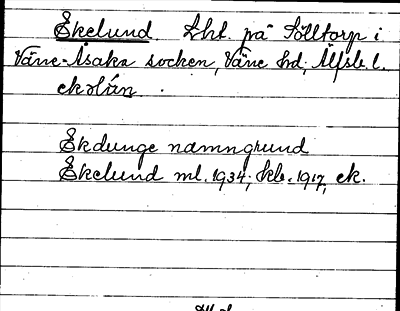 Ekelund. Lht. på Sölltorp i
Väne-Åsaka socken, Väne hd, Älfsb. l.
ek o lún
Ekdunge namngrund
Ekelund ml. 1934; kb. 1917, ek.